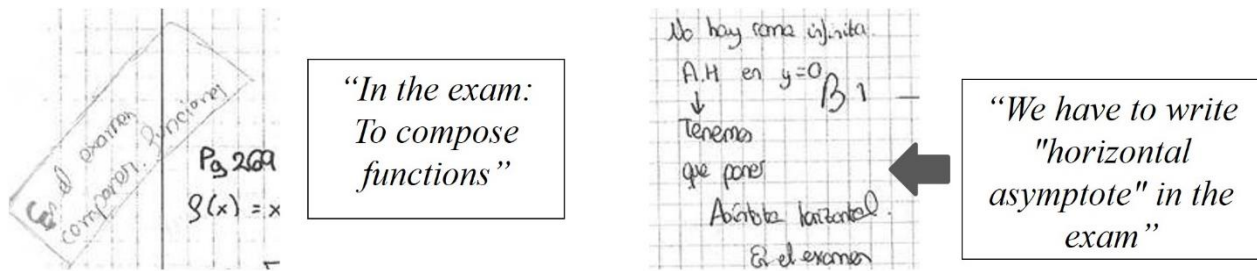 En el examen
componer funciones
Pg 269
g(x) = x
“In the exam:
To compose
functions”
No hay rama infinita.
A.H en y=0
B 1
↓
Tenemos
que poner
Asíntota horizontal.
En el examen
“We have to write
"horizontal
asymptote" in the
exam”